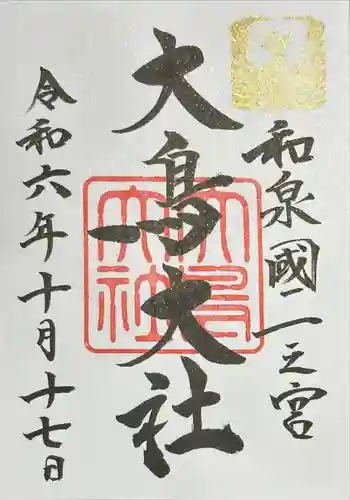 和泉國一之宮
大鳥大社
令和六年十月十七日
大鳥
大社